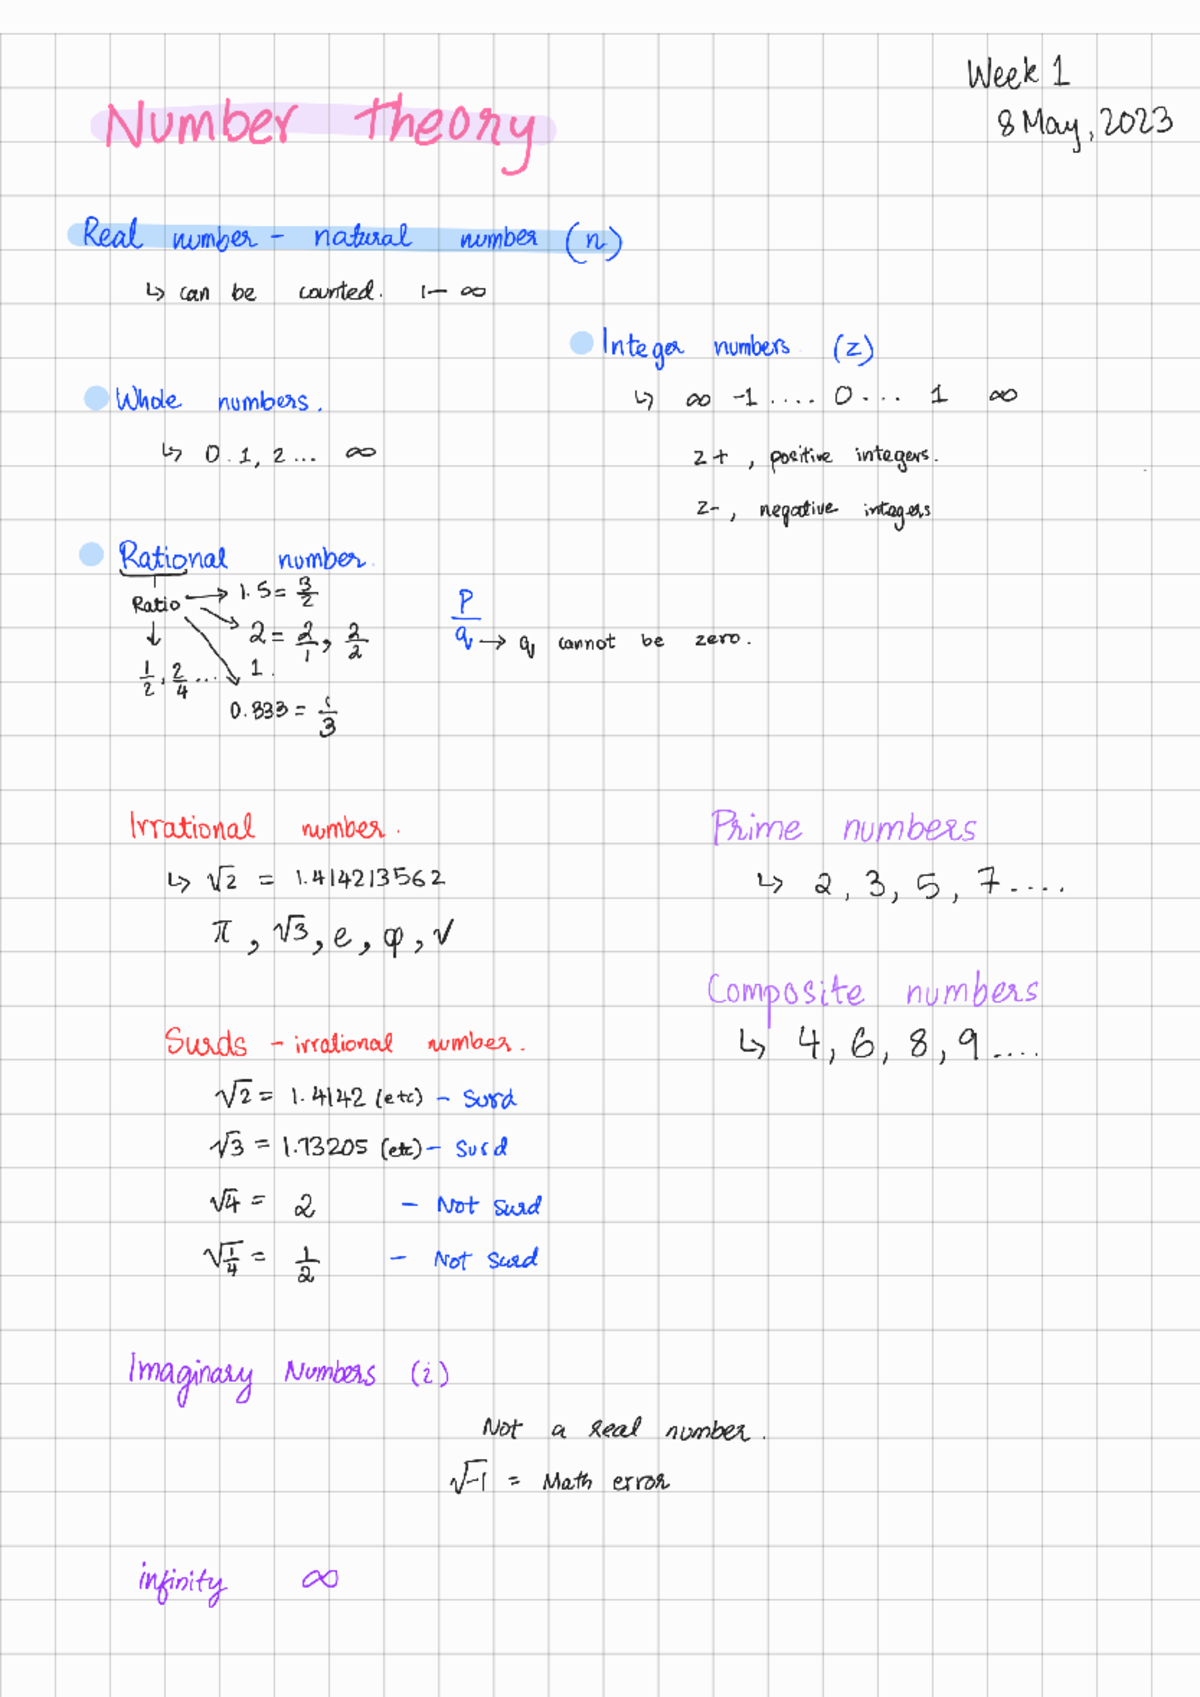 Week 1
8 May, 2023
Number theory
Real number - natural number (n)
↳ can be counted. 1- ∞
Integer numbers (z)
↳ ∞ -1 .... 0 ... 1 ∞
z+, positive integers.
z-, negative integers
Whole numbers.
↳ 0.1, 2... ∞
Rational number.
Ratio → 1.5 = 3/2
2 = 2/1, 2/2
1/2, 2/4 ... 1.
0.333 = 1/3
P/q → q cannot be zero.
Irrational number.
↳ √2 = 1.414213562
π, √3, e, φ, √
Prime numbers
↳ 2, 3, 5, 7....
Composite numbers
↳ 4, 6, 8, 9....
Surds - irrational number.
√2 = 1.4142 (etc) - Surd
√3 = 1.73205 (etc) - Surd
√4 = 2 - Not Surd
√1/4 = 1/2 - Not Surd
Imaginary Numbers (i)
Not a real number.
√-1 = Math error
infinity ∞